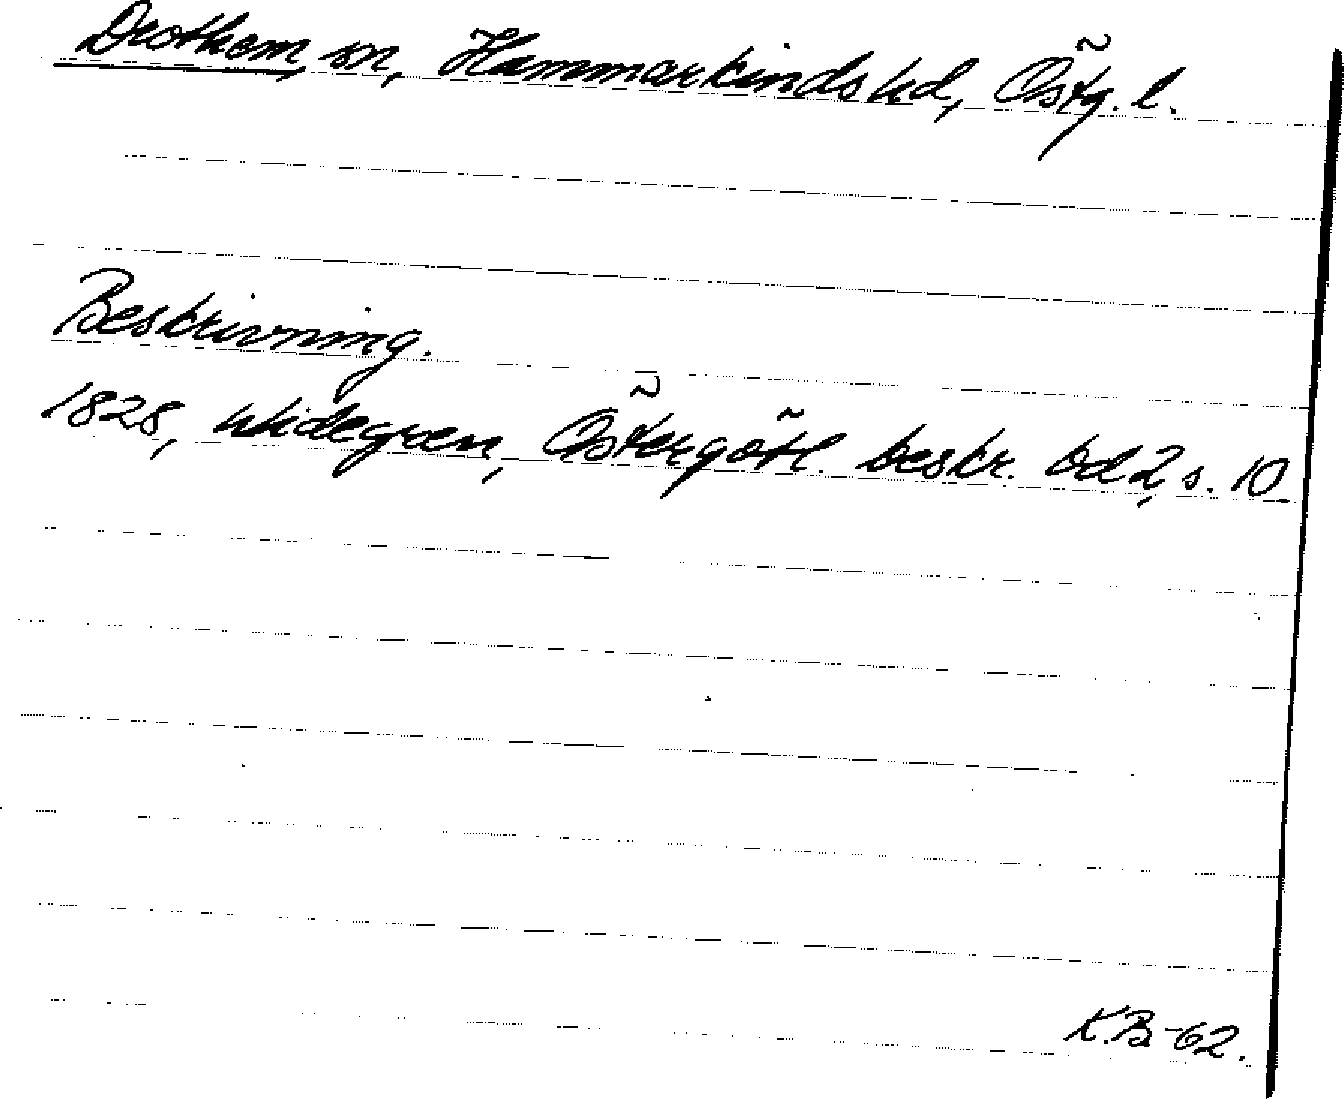 Drothem, sn, Hammarkinds hd, Östg. l.
Beskrivning.
1828, Widegren, Östergötl. beskr. bd 2, s. 10
K.B.-62.